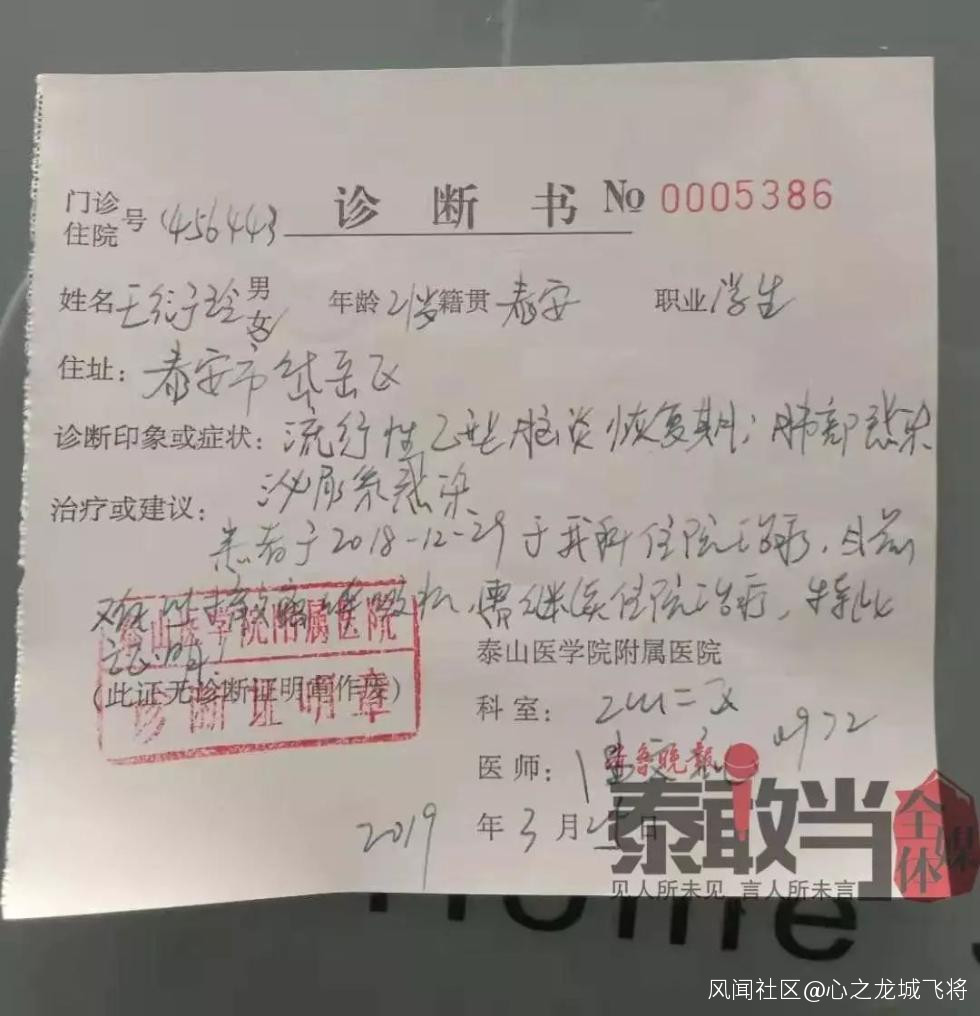 门诊
住院 号 456443 诊断书 № 0005386
姓名 王衍玲 男
女 年龄 21岁 籍贯 泰安 职业 学生
住址：泰安市岱岳区
诊断印象或症状：流行性乙型脑炎恢复期；肺部感染
泌尿系感染
治疗或建议：
患者于2018-12-29于我科住院治疗，目前
难以撤离呼吸机，需继续住院治疗，特此
证明。
泰山医学院附属医院
诊断证明章
(此证无诊断证明章作废)
泰山医学院附属医院
科室：ICU二区
医师：
2019年3月25日
齐鲁晚报
泰敢当
全媒体
见人所未见 言人所未言
Home
风闻社区@心之龙城飞将